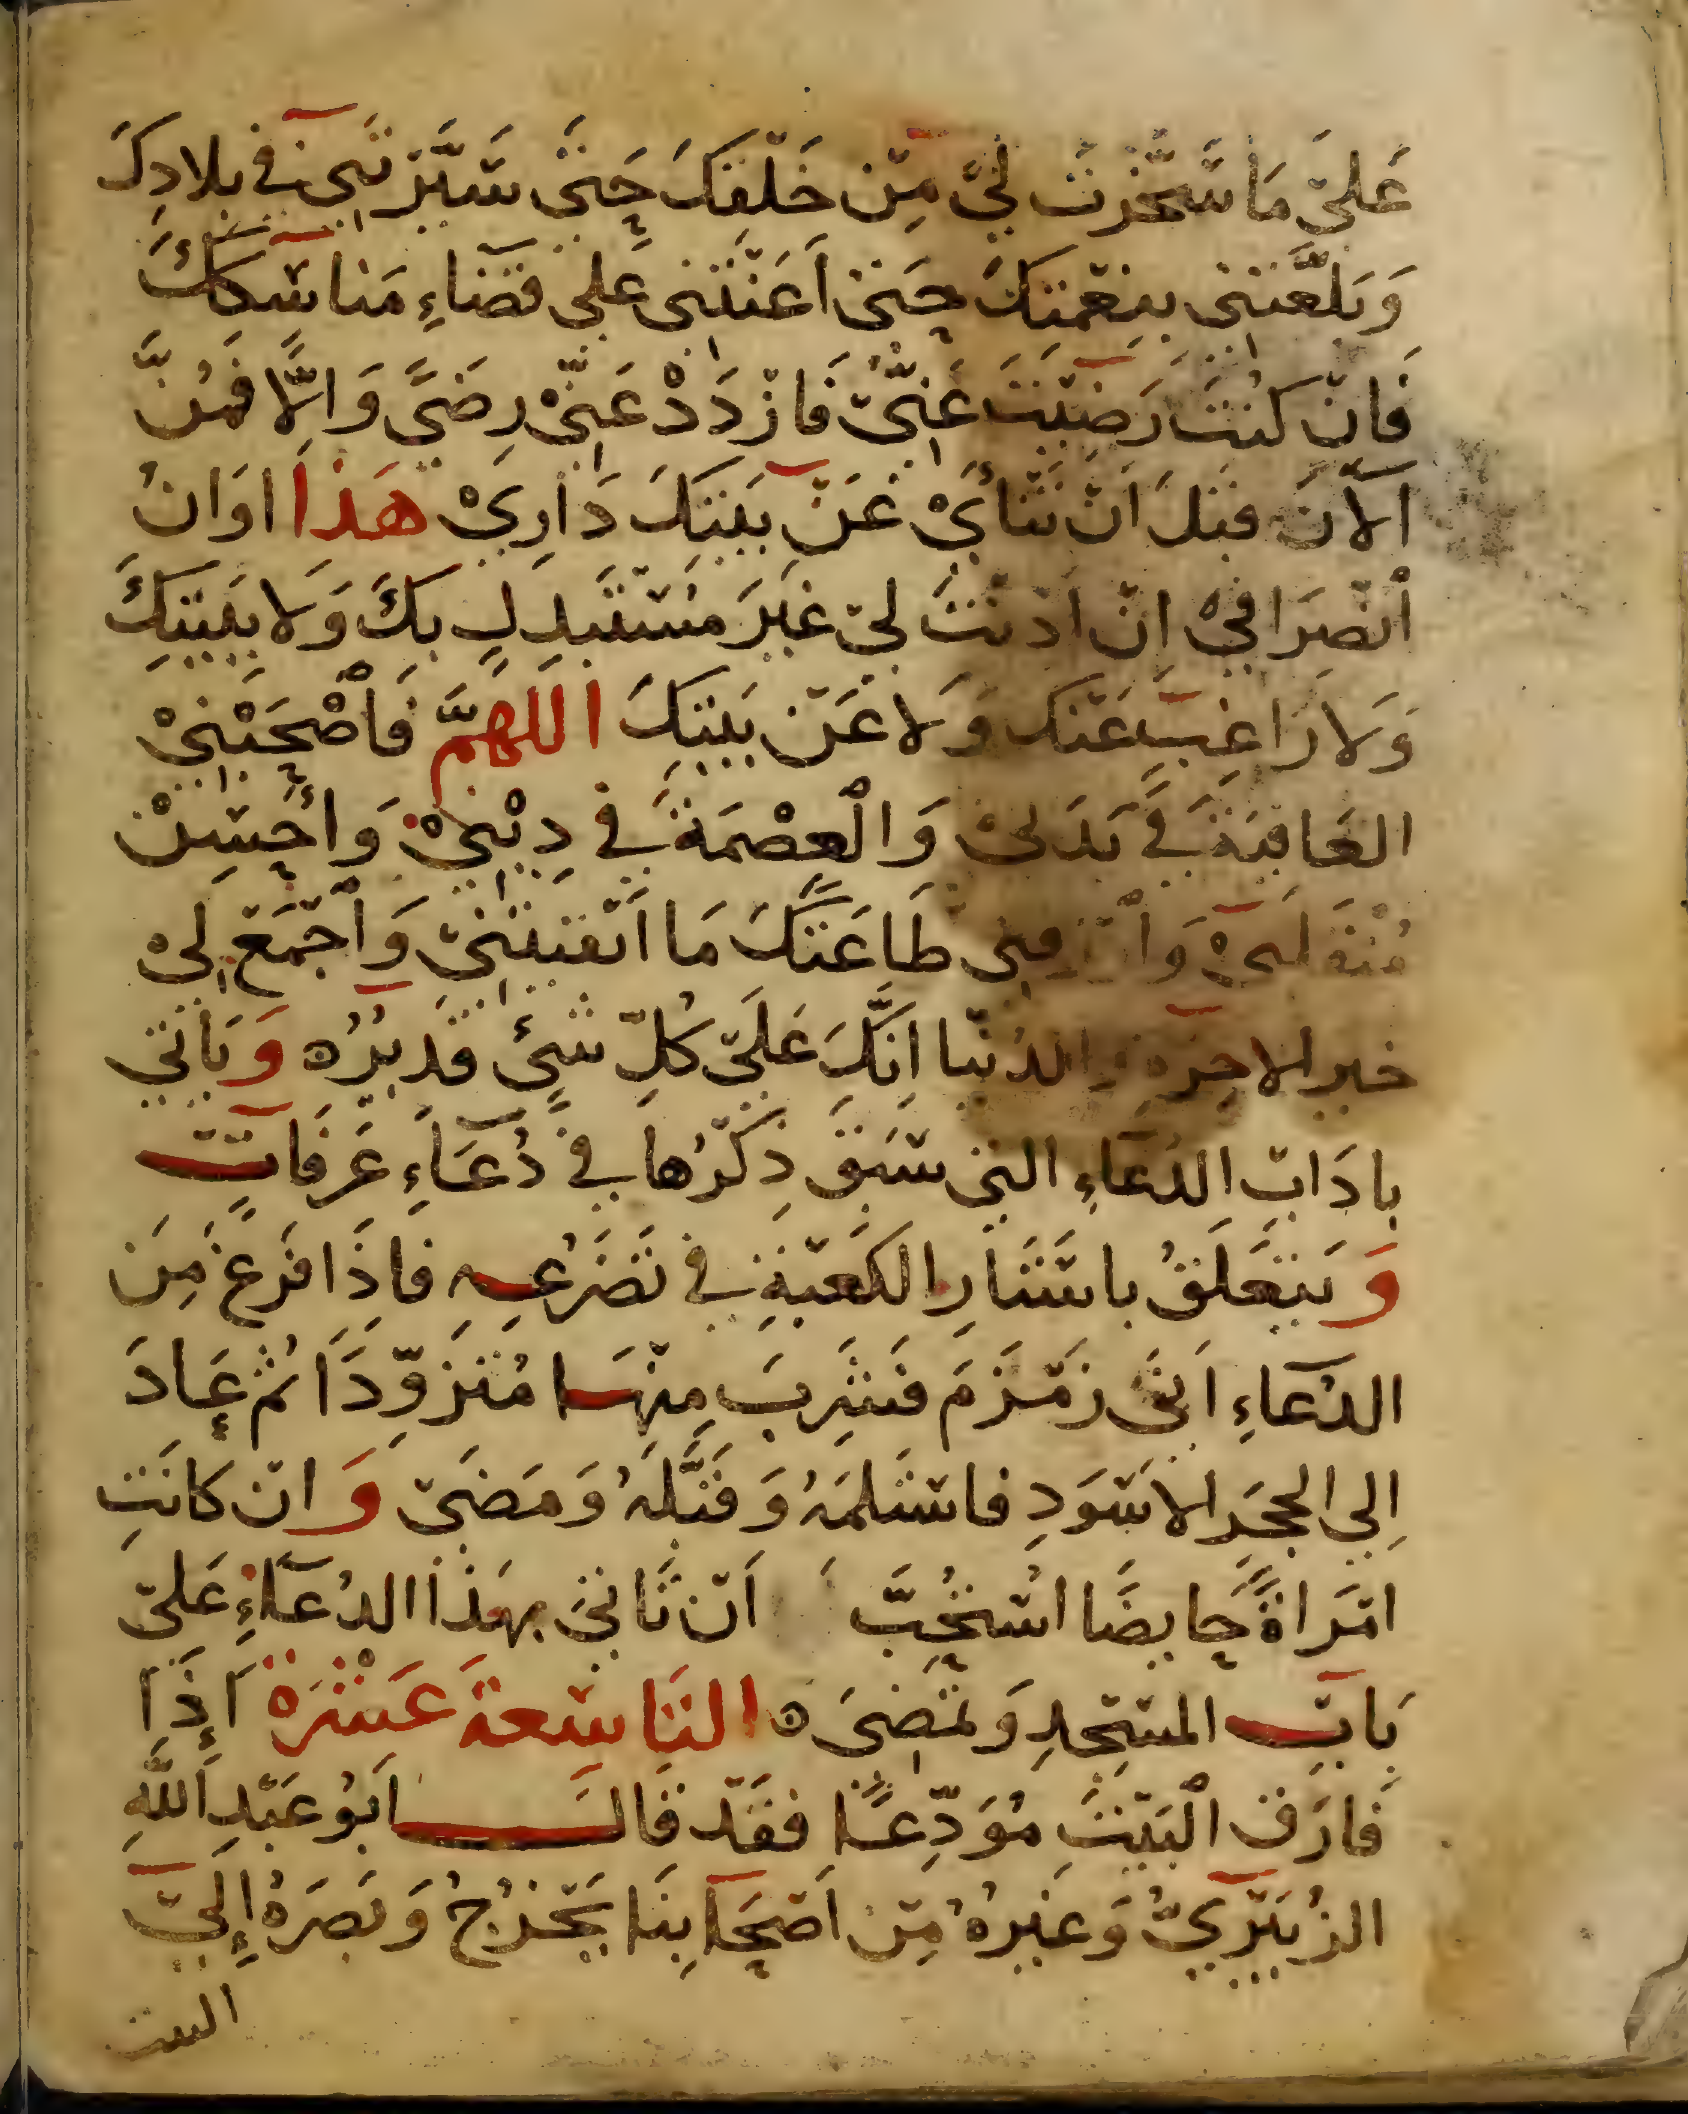 عَلَىّ مَا سَخَّرْتَ لِيّ مِّن خَلْقِكَ حَتَّى سَيَّرْتَنِي فِي بِلادِكَ
وَبَلَّغْتَنِي بِنِعْمَتِكَ حَتّىٰ اَعَنْتَنِي عَلَى قَضَاءِ مَنَاسِكَكَ
فَاِنّ كُنْتَ رَضِيْتَ عَنِّيّ فَازْدَدْ عَنِّيْ رِضًى وَاِلَّا فَمُنَّ
اَلآنَ قَبْلَ اَنْ تَنْأَىْ عَنْ بَيْتِكَ دَارِيْ هَذَا اوَانُ
ٱنْصِرَافِيْ اِنْ اَذنْتَ لِيّ غَيْرَ مُسْتَبْدِلٍ بِكَ وَلا بِبَيْتِكَ
وَلا رَاغِبٍ عَنْكَ وَلا عَنْ بَيْتِكَ اللهمَّ فَاَصْحِبْنِيْ
العَافِيَةَ فِي بَدَنِي وَالْعِصْمَةَ فِي دِيْنِيْ وَاَحْسِنْ
مُنْقَلَبِي وَارْزُقْنِي طَاعَتَكَ مَا اَبْقَيْتَنِيّ وَٱجْمَعْ لِيْ
خير الاخرة والدُّنْيا اِنَّكَ عَلَىّ كُلِّ شَيْءٍ قَدِيْرٌ ٥ وَيَأتي
بادَابِ الدُعَاءِ التي سَبَقَ ذِكْرُها فِي دُعَاءِ عَرَفَاتٍ
وَيَتَعَلَّقُ باسْتَارِ الكَعْبَةِ فِي تَضَرُّعِهِ فَاِذَا فَرَغَ مِنَ
الدُعَاءِ اَتَى زَمْزَمَ فَشَرِبَ مِنْهَا مُتَزَوِّدًا ثم عَادَ
اِلى الحجَرِ الاسْوَدِ فاسْتَلَمَهُ وَقَبَّلَهُ وَمَضَىّ وَانْ كانَتِ
امْرَاةً حَايضًا اسْتُحِبَّ اَنْ تَاتِيَ بِهَذا الدُعَاءِ عَلَىّ
بَابِ المَسْجِدِ وَتَمْضِىَ ٥ التَاسِعَة عَشْرَةَ اِذَا
فَارَقَ الْبَيْتَ مُوَدِّعًا فقَدْ قَالَ اَبُو عَبْدِ اللَّهِ
الزُبَيْرِيُّ وَغيرهُ مِنْ اَصْحَابِنَا يَخْرُجُ وَبَصَرُهُ اِلَىّ
البيت